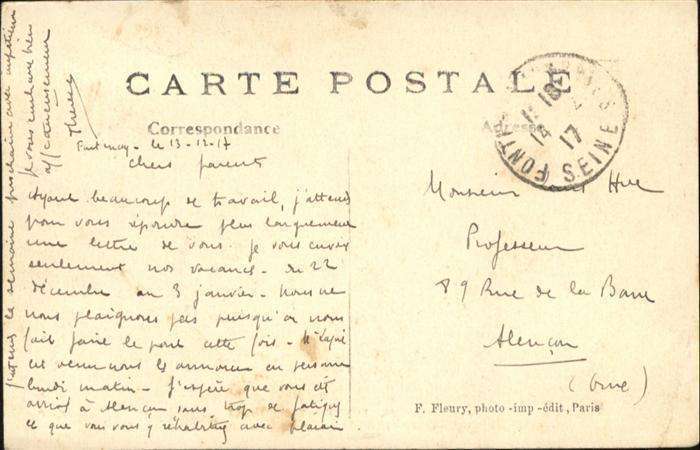 CARTE POSTALE
Correspondance
Adresse
Fontenay - le 13-12-17
Chers parents
Ayant beaucoup de travail, j'attends
pour vous répondre plus longuement
une lettre de vous. Je vous envoie
seulement nos vacances - du 22
décembre au 3 janvier - Nous ne
nous plaignons pas puisqu'on nous
fait faire le pont cette fois -
est venu nous les annoncer en personne
lundi matin - J'espère que vous êtes
arrivés à Alençon sans trop de fatigue
ce que vous vous y réhabituez avec plaisir
J'attends la semaine prochaine avec impatience
Je vous embrasse bien
affectueusement
FONTENAY SEINE
18
14
17
Monsieur Hue
Professeur
89 Rue de la Barre
Alençon
(Orne)
F. Fleury, photo-imp-édit, Paris